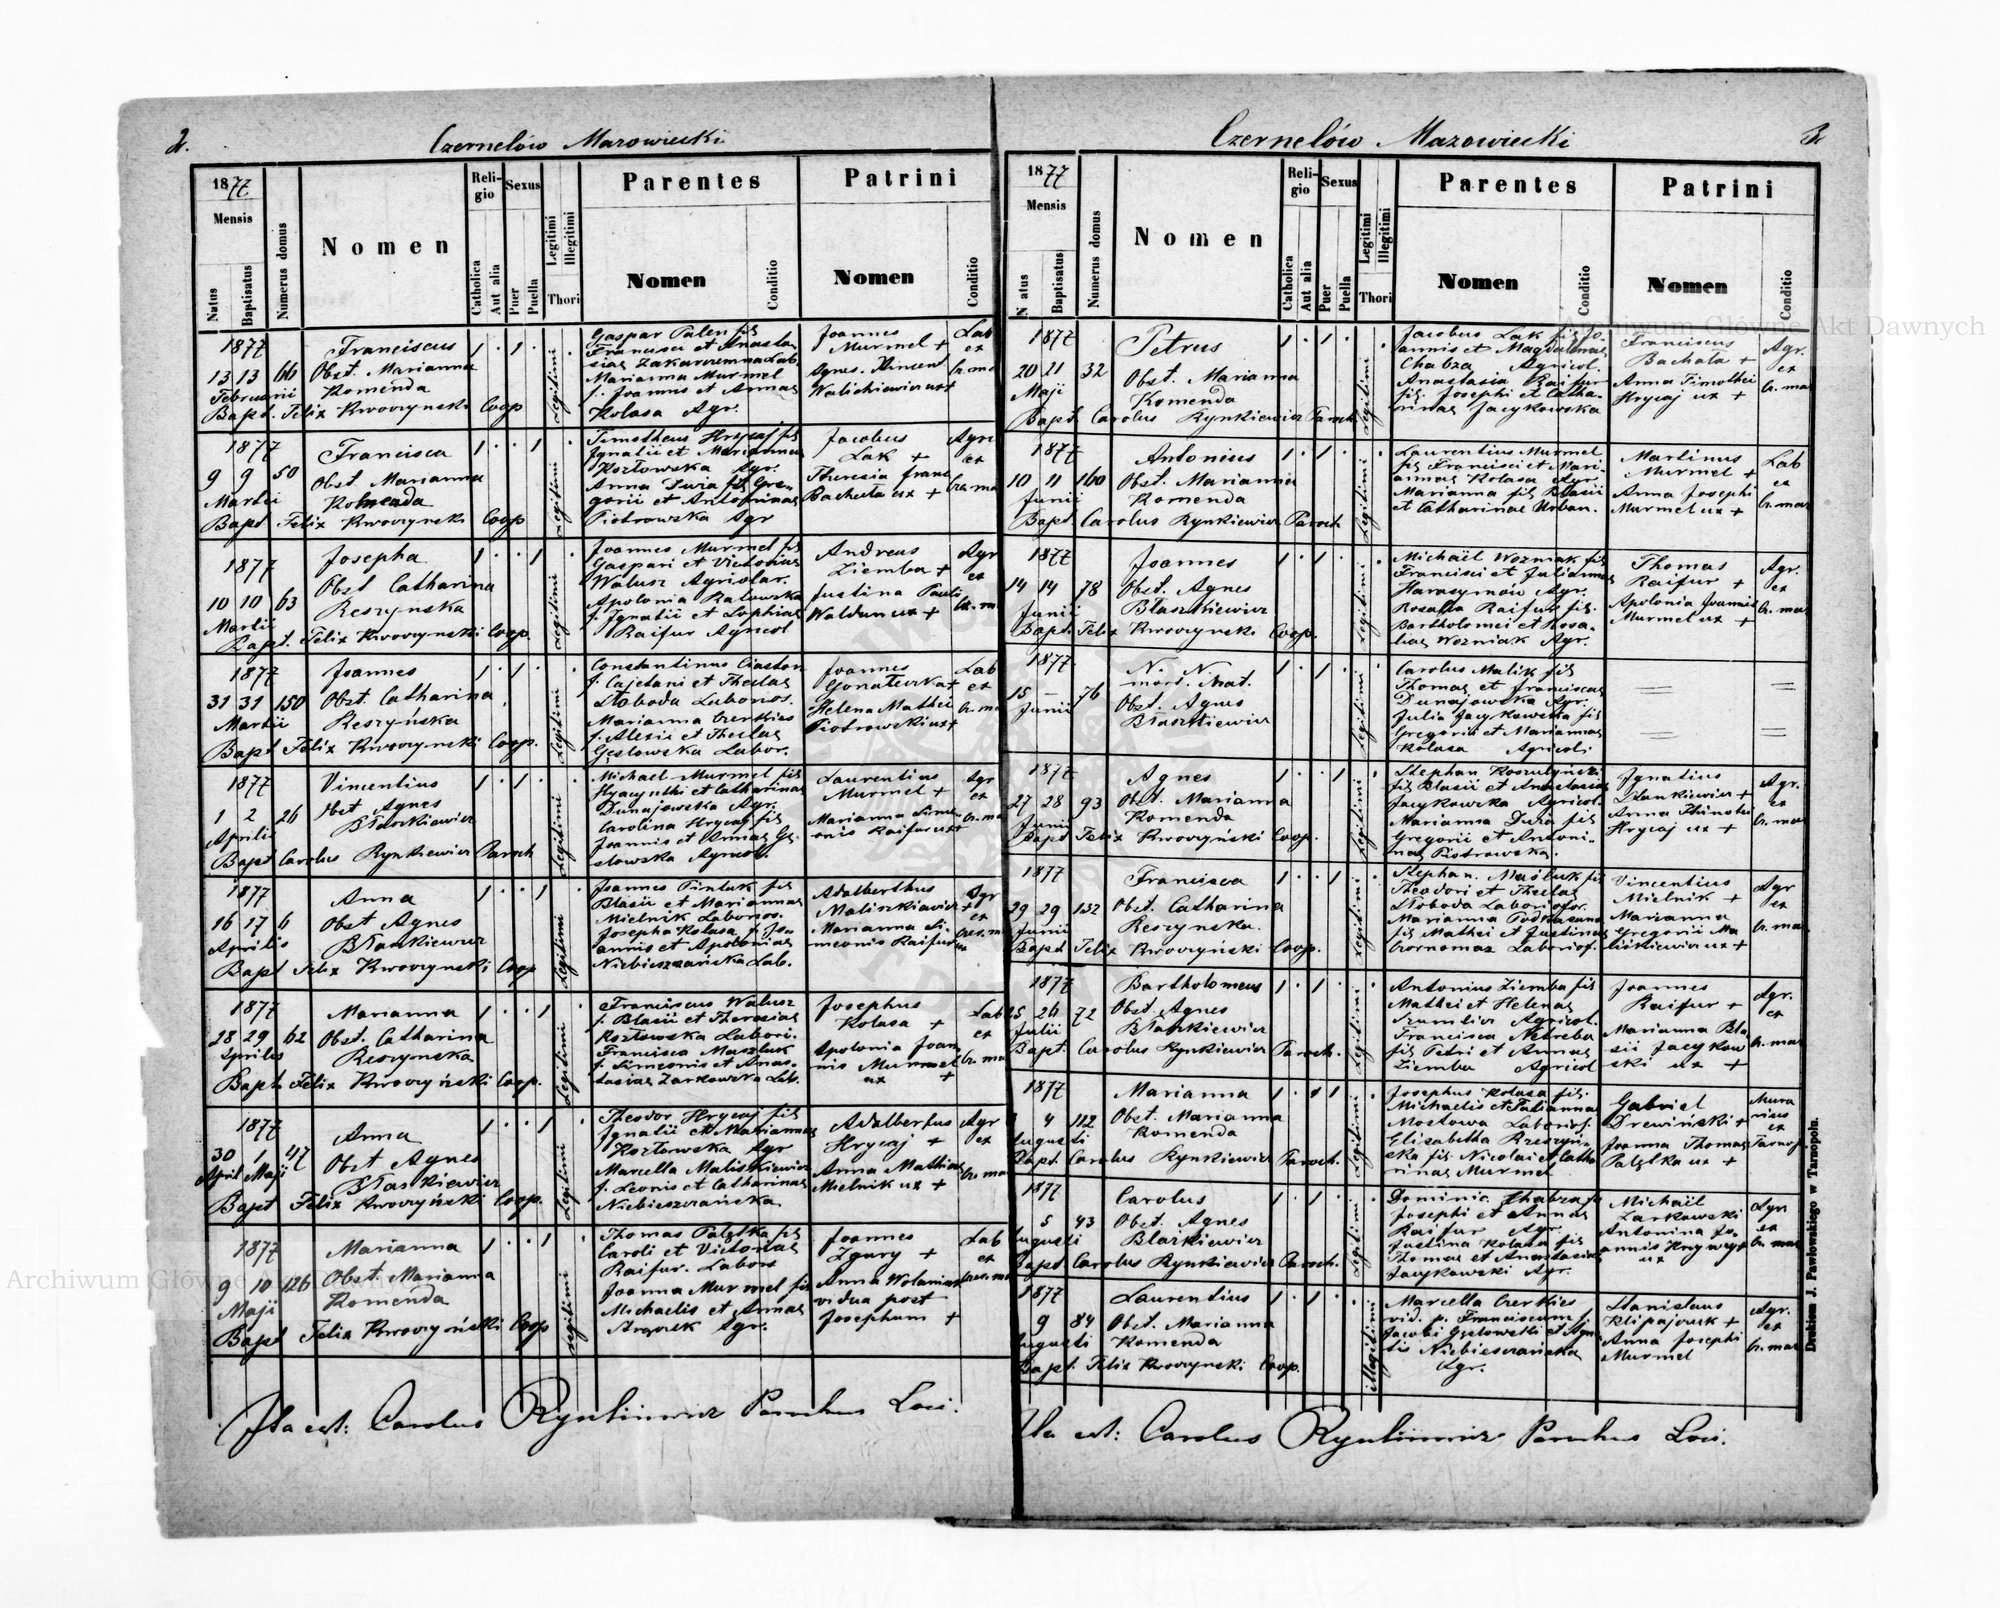 2.
Czernelów Mazowiecki
1877
Mensis
Natus
Baptisatus
Numerus domus
Nomen
Religio
Catholica
Aut alia
Sexus
Puer
Puella
Legitimi
Illegitimi
Thori
Parentes
Nomen
Conditio
Patrini
Nomen
Conditio
1877
13 13 66
Februarii
Franciscus
Obst. Marianna
Komenda
Bapt. Felix Kwoczynski Coop
1 . 1 .
Legitimi
Gaspar Palen fil
Francisci et Anastasiae
Lab.
Marianna Murmel
f. Joannis et Annae
Kolasa Agr.
Joannes
Murmel +
Agnes
Lab
et
1877
9 9 50
Martii
Francisca
Obst. Marianna
Komenda
Bapt Felix Kwoczynski Coop
1 . . 1
Legitimi
Timotheus Hrycaj fil
Ignatii et Mariannae
Kozłowska Agr.
Anna Duia fil Gregorii et Antoninae
Piotrowska Agr
Jacobus
Lak +
Theresia
Bachuta ux +
Agri
et
1877
10 10 63
Martii
Josepha
Obst Catharina
Reszynska
Bapt. Felix Kwoczynski Coop.
1 . . 1
Legitimi
Joannes Murmel fil
Gaspari et Victoriae
Walusz
Apolonia
f. Ignatii et Sophiae
Raifur Agricol
Andreas
Ziemba +
Justina Pauli
Waldun ux +
Agr
et
1877
31 31 150
Martii
Joannes
Obst. Catharina
Reszyńska
Bapt Felix Kwoczynski Coop.
1 . 1 .
Legitimi
Constantinus
f. Cajetani et Theclae
Słoboda Laborios.
Marianna Czerkies
f. Alexii et Theclae
Gęslowska Labor.
Joannes
Helena Mathei
Piotrowski ux +
Lab
et
1877
1 2 26
Aprilis
Vincentius
Obst Agnes
Błaszkiewicz
Bapt Carolus Rynkiewicz Paroch
1 . 1 .
Legitimi
Michael Murmel fil
Hyacynthi et Catharinae
Dunajowska Agr.
Carolina Hrycaj fil
Joannis et Annae Gęslowska Agricol.
Laurentius
Murmel +
Marianna Simeonis Raifur ux +
Agr
et
1877
16 17 6
Aprilis
Anna
Obst Agnes
Błaszkiewicz
Bapt Felix Kwoczynski Coop
1 . . 1
Legitimi
Joannes Pintak fil
Blasii et Mariannae
Mielnik Laborios.
Josepha Kolasa f. Joannis et Apoloniae
Niebieszczańska Lab.
Adalberthus
Maliszkiewicz +
Marianna Simeonis Raifur ux
Agr
et
1877
28 29 62
Aprilis
Marianna
Obst. Catharina
Reszynska
Bapt Felix Kwoczyński Coop.
1 . . 1
Legitimi
Franciscus Walusz
f. Blasii et Theresiae
Kozłowska Labori.
Francisca Maszluk
f. Simeonis et Anastasiae Żarkowska Lab.
Josephus
Kolasa +
Apolonia Joannis Murmel
ux +
Lab
et
1877
30 1 47
April. Maji
Anna
Obst Agnes
Błaszkiewicz
Bapt Felix Kwoczyński Coop.
1 . . 1
Legitimi
Theodor Hrycaj fil
Ignatii et Mariannae
Kozłowska Agr
Marcella Maliszkiewicz
f. Leonis et Catharinae
Niebieszczańska
Adalbertus
Hrycaj +
Anna Mathiae
Mielnik ux +
Agr
et
1877
9 10 126
Maji
Marianna
Obst. Marianna
Komenda
Bapt Felix Kwoczyński Coop
1 . . 1
Legitimi
Thomas Pałętka fil
Caroli et Victoriae
Raifur. Labors
Joanna Murmel fil
Michaelis et Annae
Agr.
Joannes
Zgury +
Anna
vidua post
Josephum +
Lab
et
Ita est: Carolus Rynkiewicz Parochus Loci.
3.
Czernelów Mazowiecki
1877
Mensis
Natus
Baptisatus
Numerus domus
Nomen
Religio
Catholica
Aut alia
Sexus
Puer
Puella
Legitimi
Illegitimi
Thori
Parentes
Nomen
Conditio
Patrini
Nomen
Conditio
1877
20 21 32
Maji
Petrus
Obst. Marianna
Komenda
Bapt Carolus Rynkiewicz Paroch
1 . 1 .
Legitimi
Jacobus Lak fil Joannis et Magdalenae
Chabza Agricol.
Anastasia Raifur
fil. Josephi et Catharinae Jacykowska
Franciscus
Bachuta +
Anna Timothei
Hrycaj ux +
Agr.
et
1877
10 11 160
Junii
Antonius
Obst. Marianna
Komenda
Bapt Carolus Rynkiewicz Paroch
1 . 1 .
Legitimi
Laurentius Murmel
fil Francisci et Mariannae Kolasa Agr
Marianna fil Blasii
et Catharinae Urban.
Martinus
Murmel +
Anna Josephi
Murmel ux +
Lab
et
1877
14 14 78
Junii
Joannes
Obst. Agnes
Błaszkiewicz
Bapt. Felix Kwoczynski Coop.
1 . 1 .
Legitimi
Michaël Wozniak fil
Francisci et Julianna
Harasymów Agr.
Rosalia Raifur fil.
Bartholomei et Rosaliae Wozniak Agr.
Thomas
Raifur +
Apolonia Joannis
Murmel ux +
Agr.
et
1877
15 — 76
Junii
N. N.
mort. nat.
Obst. Agnes
Błaszkiewicz
1 . 1 .
Legitimi
Carolus Malik fil
Thomae et Franciscae
Dunajowska Agr.
Julia Jacykowska fil
Gregorii et Mariannae
Kolasa Agricol.
1877
27 28 93
Junii
Agnes
Obst. Marianna
Komenda
Bapt Felix Kwoczyński Coop.
1 . . 1
Legitimi
Stephan
fil Blasii et Anastasiae
Jacykowska Agricol.
Marianna Duia fil
Gregorii et Antoninae Piotrowska.
Ignatius
Stankiewicz +
Anna
Hrycaj ux +
Agr.
et
1877
29 29 132
Junii
Francisca
Obst. Catharina
Reszynska.
Bapt Felix Kwoczyński Coop.
1 . . 1
Legitimi
Stephan. Maśluk fil
Theodori et Theclae
Słoboda Laborios.
Marianna
fil Mathei et Justinae
Czornomaz Laborios.
Vincentius
Mielnik +
Marianna
Gregorii
ux +
Agr
et
1877
25 26 72
Julii
Bartholomeus
Obst. Agnes
Błaszkiewicz
Bapt. Carolus Rynkiewicz Paroch.
1 . 1 .
Legitimi
Antonius Ziemba fil
Mathei et Helenae
Agricol.
Francisca Netreba
fil Petri et Annae
Ziemba Agricol
Joannes
Raifur +
Marianna Blasii Jacykowski ux +
Agr.
et
1877
4 112
Augusti
Marianna
Obst. Marianna
Komenda
Bapt Carolus Rynkiewicz Paroch.
Legitimi
Josephus Kolasa fil.
Michaelis et Tatianna
Mostowa Laborios.
Elisabetha
fil. Nicolai et Catharinae Murmel
Gabriel
Drewiński +
Joanna Thomae
Pałętka ux +
Murarius
et
Tarnop
1877
5 43
Augusti
Carolus
Obst. Agnes
Błaszkiewicz
Bapt Carolus Rynkiewicz Paroch.
1 . 1 .
Legitimi
Dominic. Chabza
Josephi et Annae
Raifur Agr
Justina Kolasa fil
Thomae et Anastasiae
Jacykowski Agr.
Michaël
Żarkowski
Antonina Joannis
ux +
Agr
1877
9 84
Augusti
Laurentius
Obst. Marianna
Komenda
Bapt. Felix Kwoczynski Coop.
1 . 1 .
Illegitimi
Marcella Czerkies
vid. p. Franciscum f.
Jacobi Gęslowski et Agnetis Niebieszczańska
Agr.
Stanislaus
Klipajczuk +
Anna Josephi
Murmel
Agr.
et
Ita est: Carolus Rynkiewicz Parochus Loci.
Drukiem J. Pawłowskiego w Tarnopolu.
Archiwum Główne Akt Dawnych
Archiwum Główne Akt Dawnych